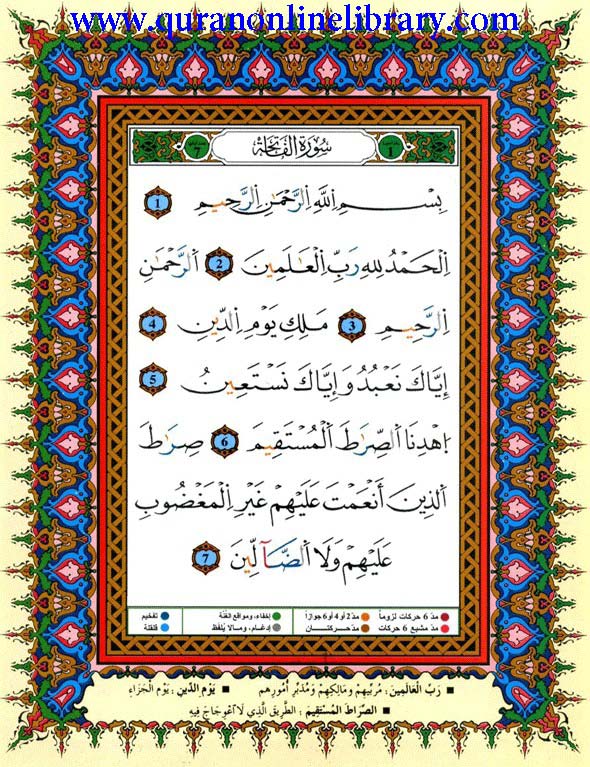 www.quranonlinelibrary.com
سُورَةُ الفَاتِحَة
بِسْمِ اللَّهِ الرَّحْمَٰنِ الرَّحِيمِ 1
الْحَمْدُ لِلَّهِ رَبِّ الْعَالَمِينَ 2 الرَّحْمَٰنِ
الرَّحِيمِ 3 مَلِكِ يَوْمِ الدِّينِ 4
إِيَّاكَ نَعْبُدُ وَإِيَّاكَ نَسْتَعِينُ 5
اهْدِنَا الصِّرَاطَ الْمُسْتَقِيمَ 6 صِرَاطَ
الَّذِينَ أَنْعَمْتَ عَلَيْهِمْ غَيْرِ الْمَغْضُوبِ
عَلَيْهِمْ وَلَا الضَّآلِّينَ 7
مدّ 6 حركات لزوماً مدّ 2 أو 4 أو 6 جوازاً إخفاء، ومواقع الغُنَّة تفخيم
مدّ مشبع 6 حركات مدّ حركتان إدغام، وما لا يُلفظ قلقلة
رَبِّ الْعَالَمِينَ : مُرَبِّيهِمْ وَمَالِكِهِمْ وَمُدَبِّرِ أُمُورِهِمْ يَوْمِ الدِّينِ : يَوْمِ الْجَزَاءِ
الصِّرَاطَ الْمُسْتَقِيمَ : الطَّرِيقَ الَّذِي لَا اعْوِجَاجَ فِيهِ